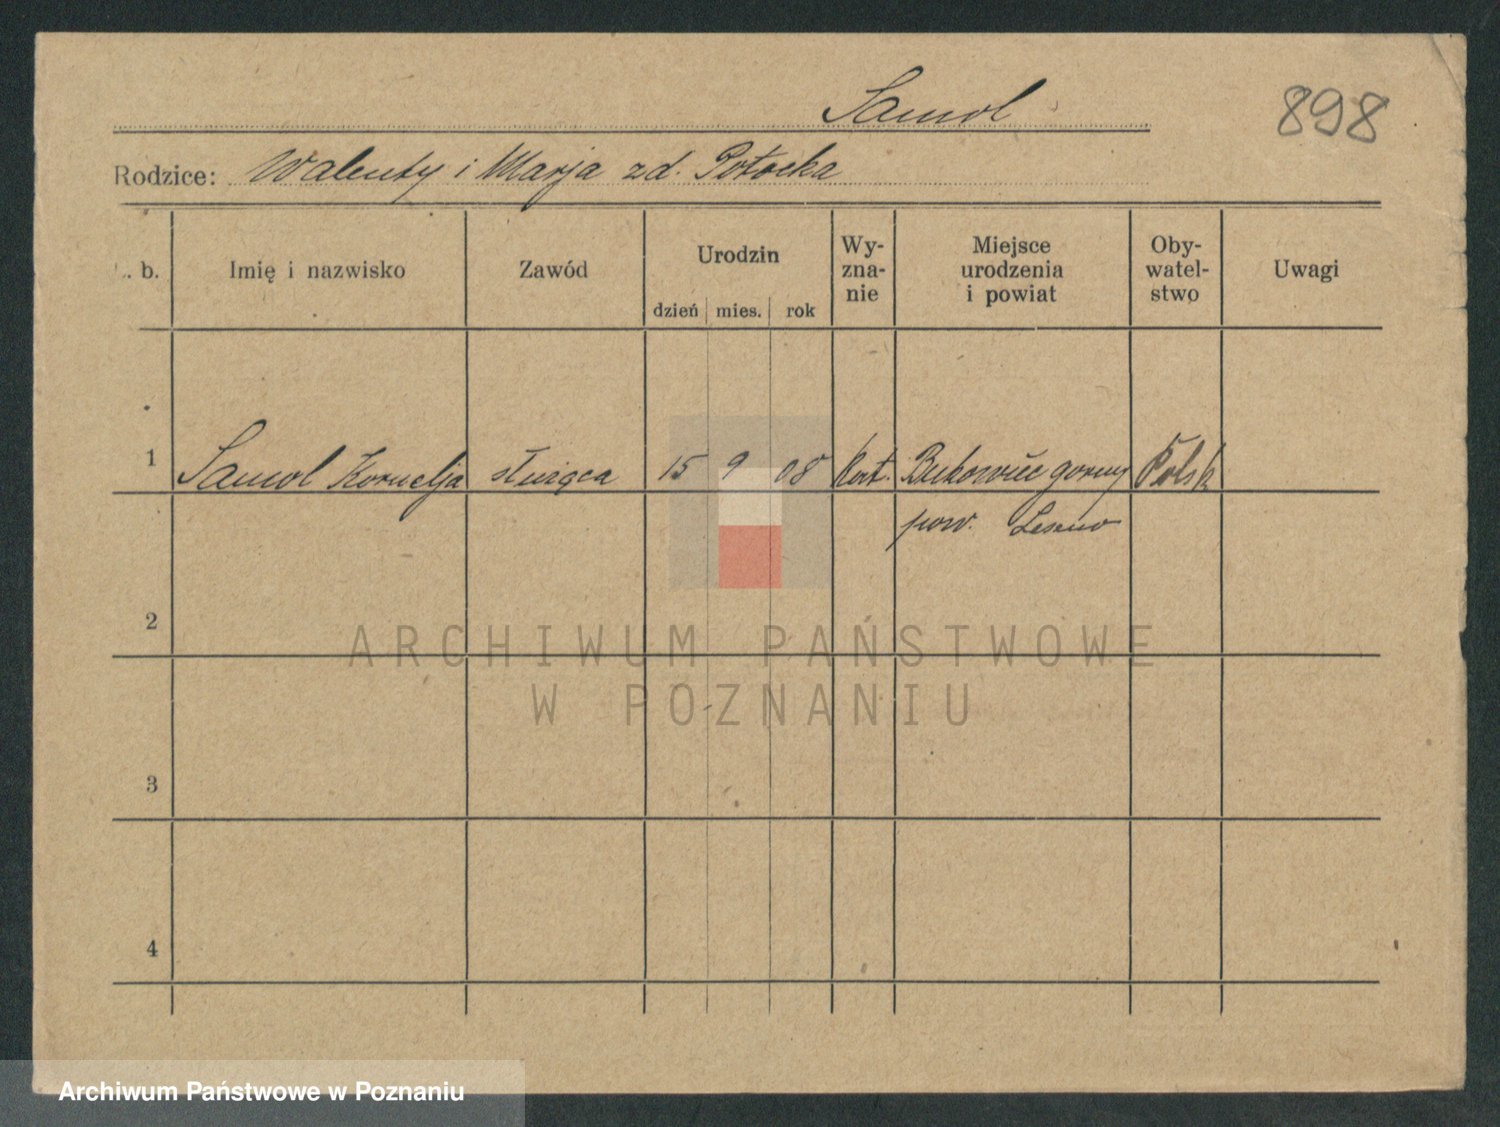 Samol
898
Rodzice: Walenty i Marja zd. Potocka
. b. Imię i nazwisko Zawód Urodzin dzień mies. rok Wy-zna-nie Miejsce urodzenia i powiat Oby-watel-stwo Uwagi
1 Samol Kornelja służąca 15 9 08 kat. Bukowiec gorny Polsk
pow. Leszno
2
ARCHIWUM PAŃSTWOWE
W POZNANIU
3
4
Archiwum Państwowe w Poznaniu